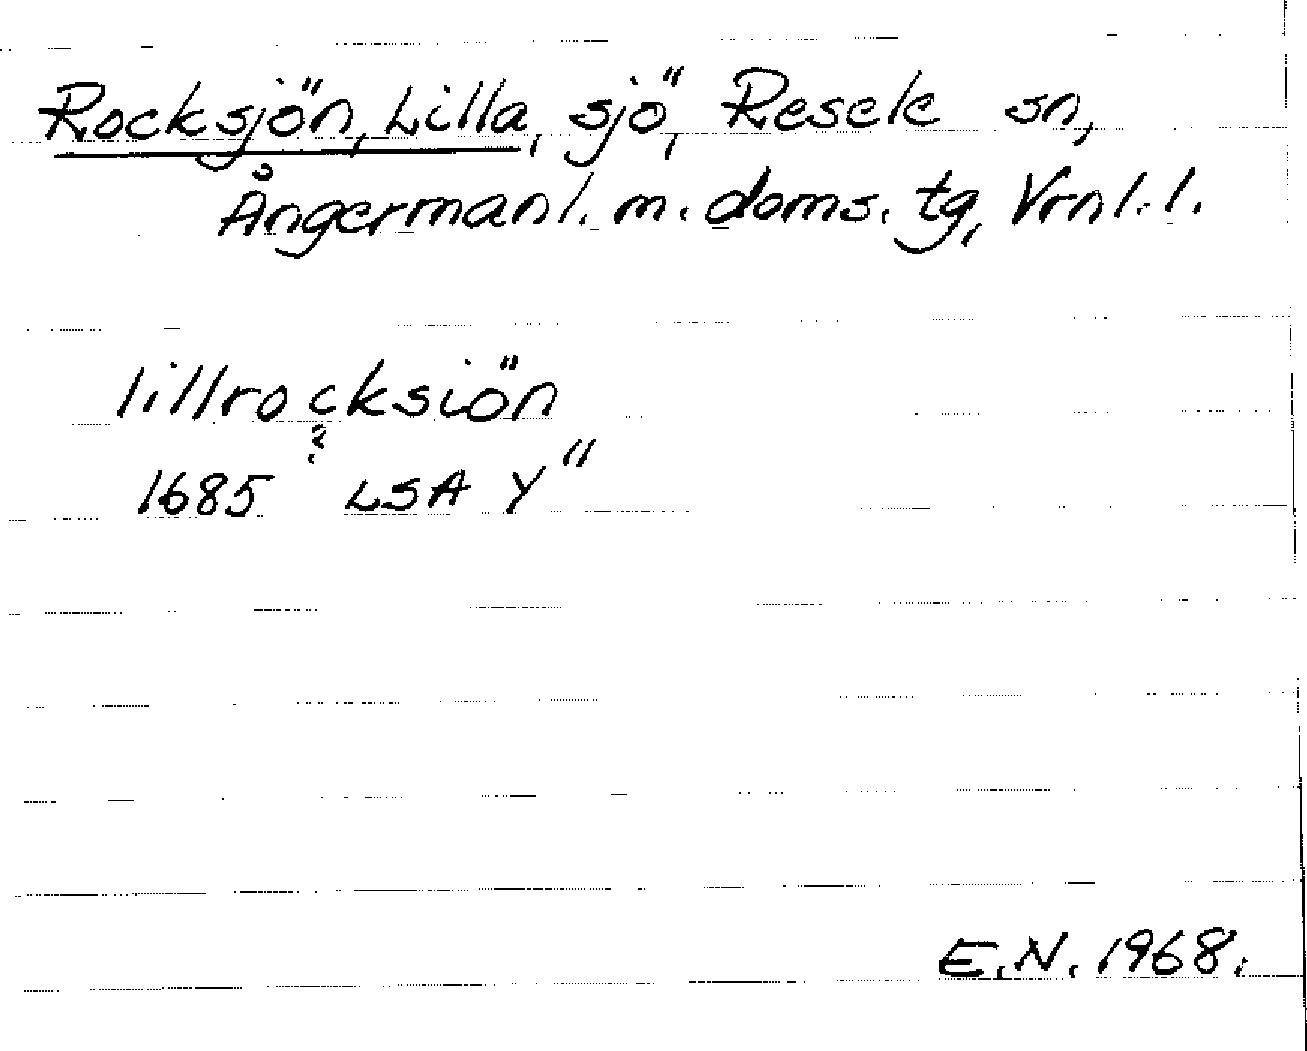 Rocksjön, Lilla, sjö, Resele sn,
Ångermanl. m. doms. tg, Vrnl. l.
lillrocksiön
?
1685 LSA Y"
E.N. 1968.